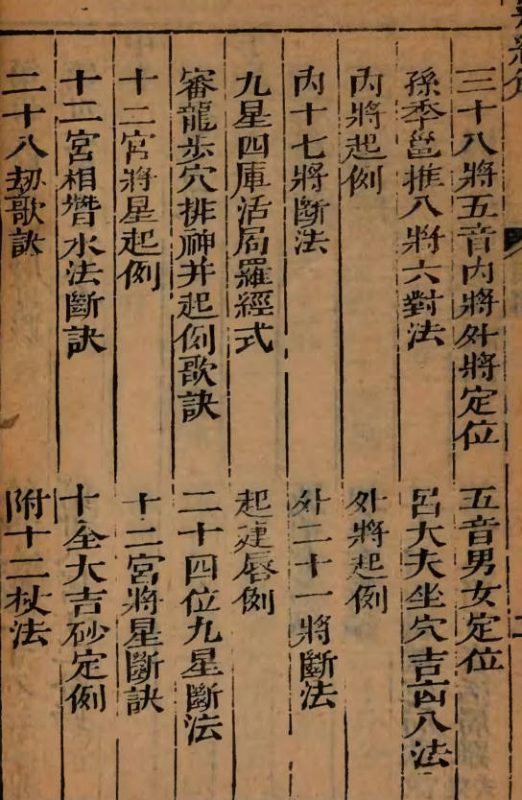 三十八將五音內將外將定位　五音男女定位
孫季邕推八將六對法　呂大夫坐穴吉凶八法
內將起例　外將起例
內十七將斷法　外二十一將斷法
九星四庫活局羅經式　起建唇例
審龍步穴排神并起例歌訣　二十四位九星斷法
十二宮將星起例　十二宮將星斷訣
十二宮相揩水法斷訣　十全大吉砂定例
二十八劫歌訣　附十二杖法